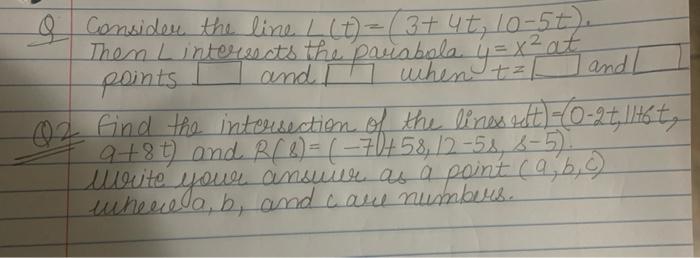 Q Consider the line L(t)=(3+4t, 10-5t).
Then L intersects the parabola y=x² at
points and when t= and
Q2 Find the intersection of the lines r(t)=(0-2t, 11+6t,
9+8t) and R(s)=(-71+5s, 12-5s, s-5).
Write your answer as a point (a,b,c)
where a, b, and c are numbers.